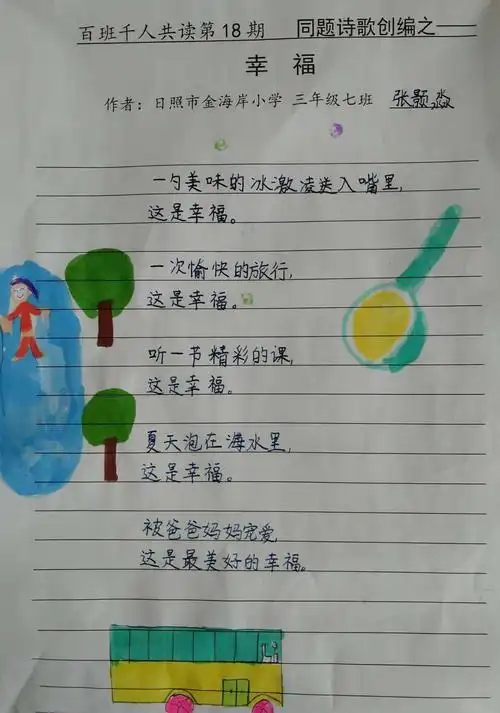 百班千人共读第18期 同题诗歌创编之——
幸 福
作者：日照市金海岸小学 三年级七班 张颢淼
一勺美味的冰激凌送入嘴里，
这是幸福。
一次愉快的旅行，
这是幸福。
听一节精彩的课，
这是幸福。
夏天泡在海水里，
这是幸福。
被爸爸妈妈宠爱，
这是最美好的幸福。